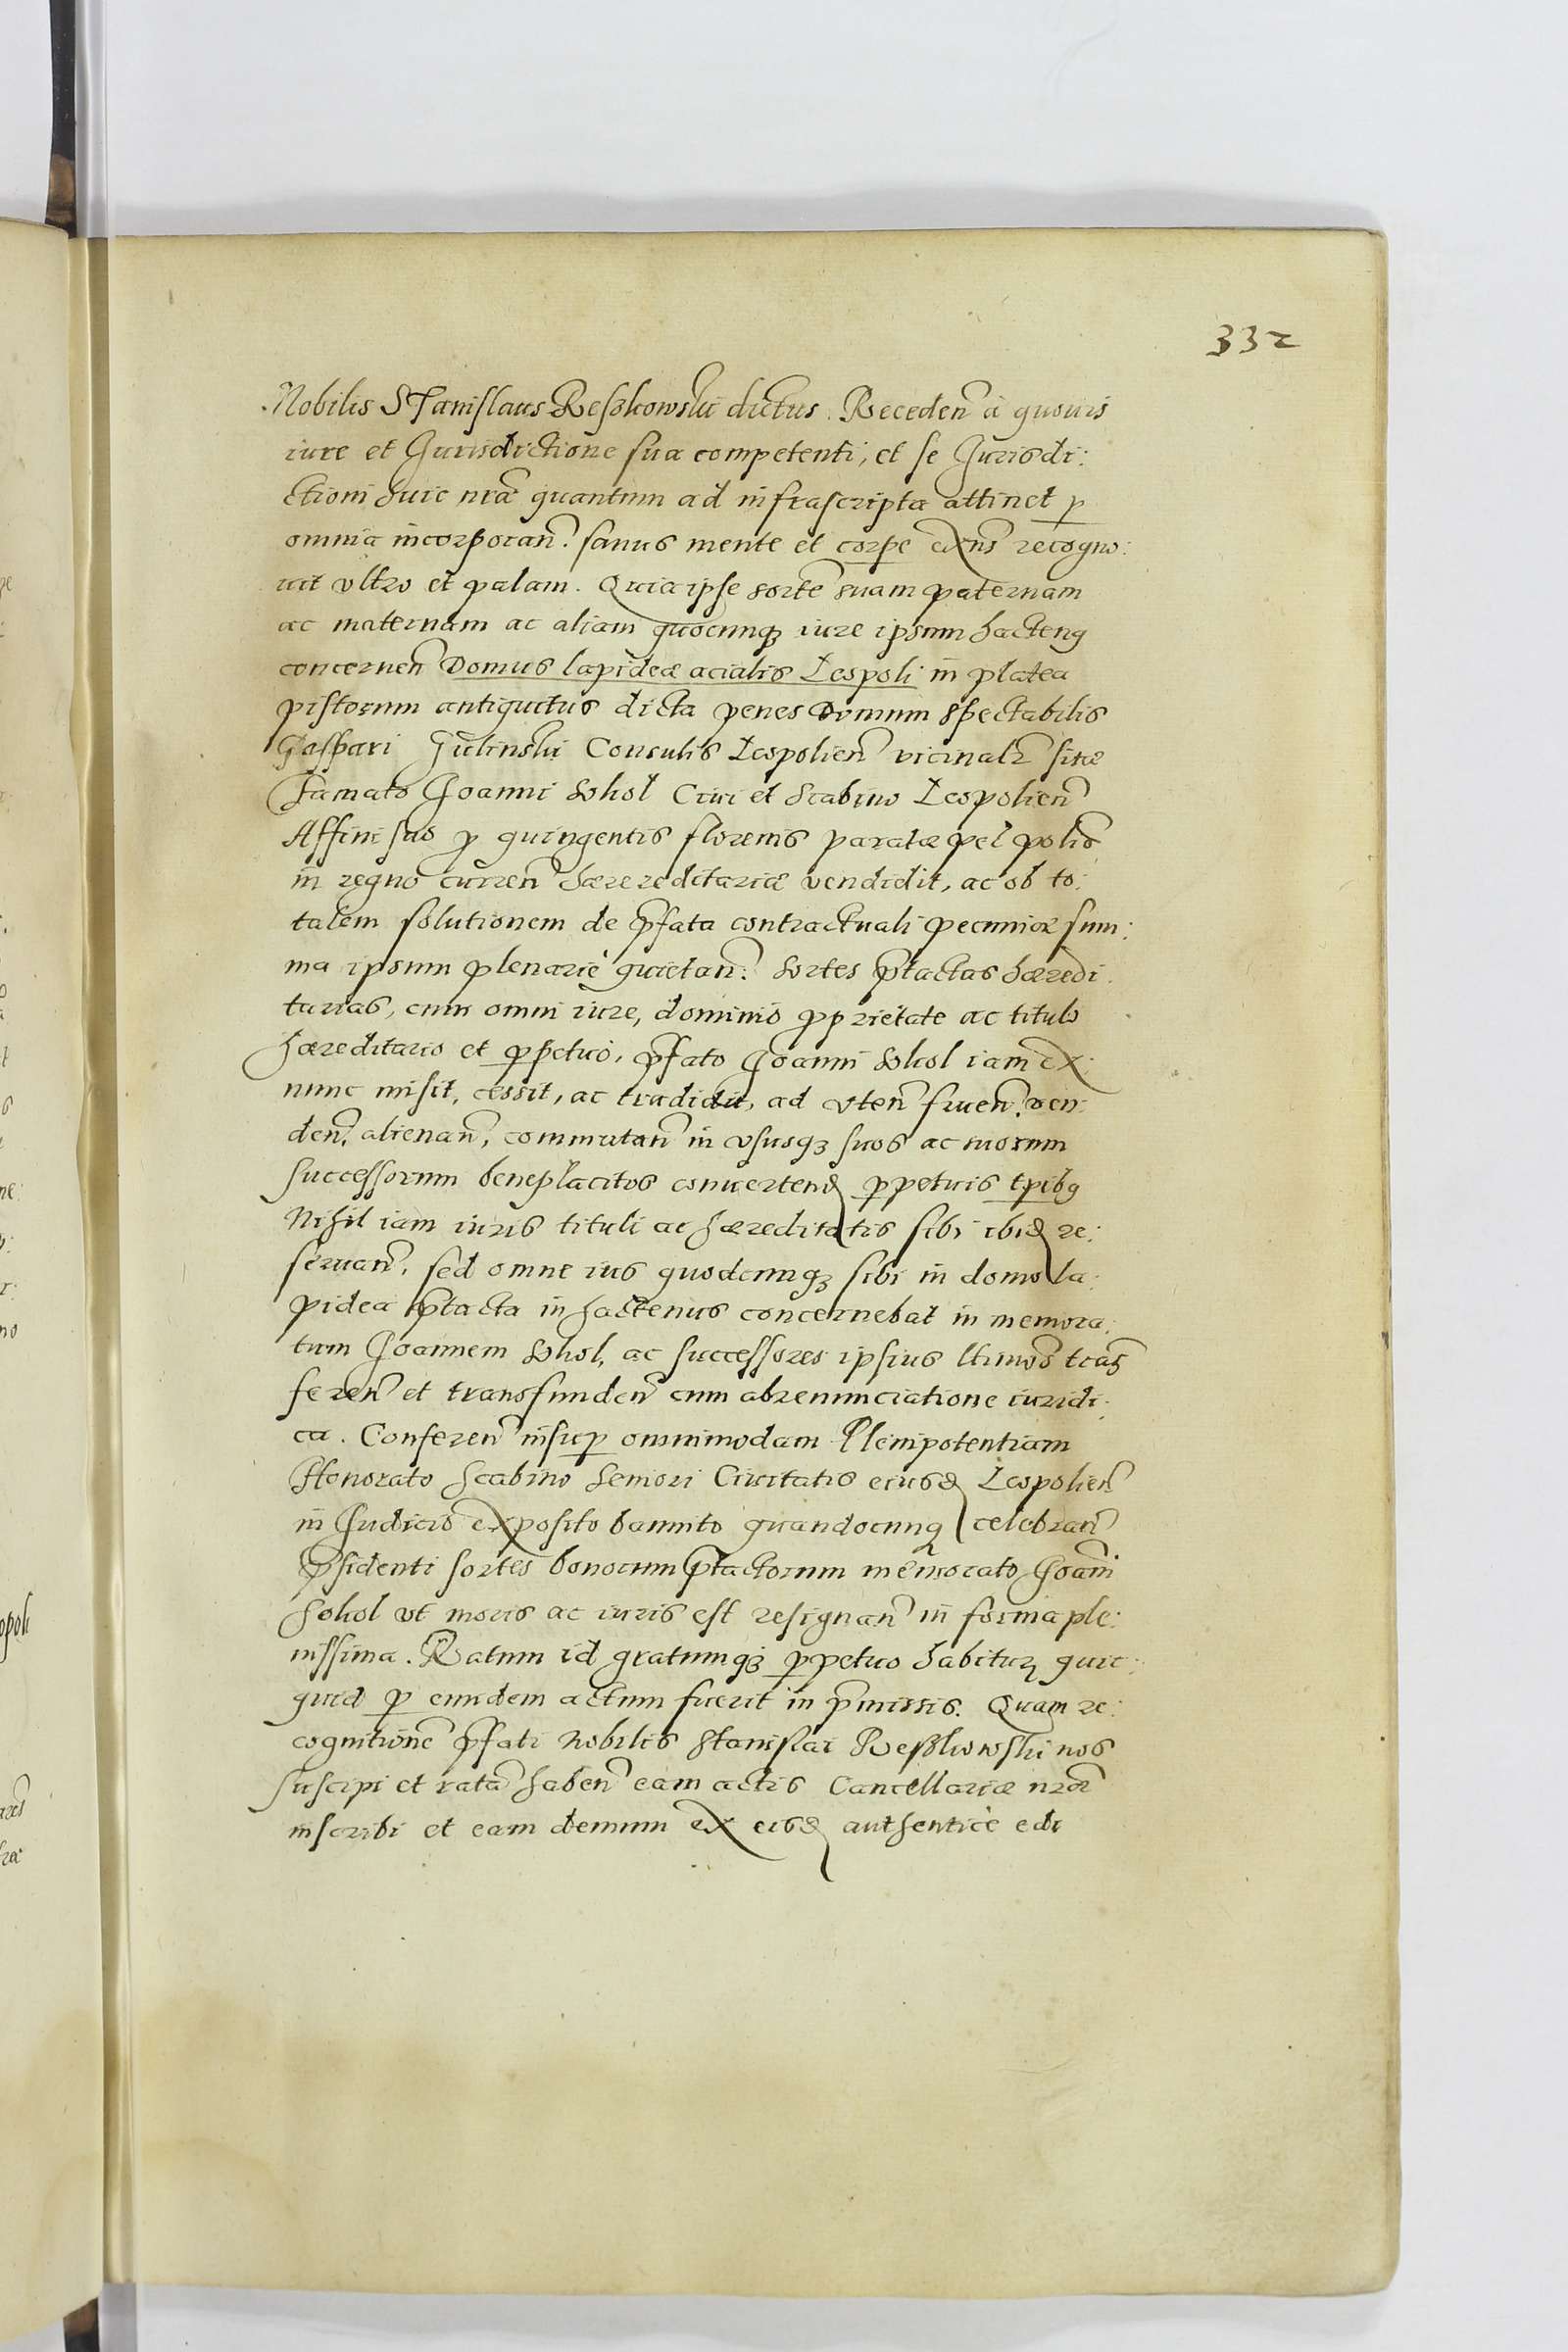 332
Nobilis Stanislaus Reszkowski dictus. Receden̄ à quovis
iure et Jurisdictione sua competenti, et se Jurisdi:
ctioni huic nr̄æ quantum ad infrascripta attinet ꝑ
omnia incorporan̄. sanus mente et corꝑe exn̄s recogno:
uit vltro et palam. Quia ipse sortē suam paternam
ac maternam ac aliam quocunqȝ iure ipsum hactenꝰ
concernen̄ Domus lapideæ acialis Leopoli in platea
pistorum antiquitus dicta penes Domum Spectabilis
Gaspari Consulis Leopolien̄ vicinalr̄ sitæ
Famato Joanni Sohol Ciui et Scabino Leopolien̄
Affini suo ꝓ quingentis florenis paratæ pel̄ poliē
in regno curren̄ hærereditariæ vendidit, ac ob to:
talem solutionem de p̄fata contractuali pecuniæ sum:
ma ipsum plenariè quietan̄. Sortes p̄tactas hæredi:
tarias, cum omni iure, dominio ꝓprietate ac titulo
hæreditario et ꝑpetuò, p̄fato Joanni Sohol iam ex
nunc misit, cessit, ac tradidit, ad vten̄ fruen̄. ven:
den̄, alienan̄, commutan̄ in vsusqȝ suos ac suorum
successorum beneplacitos conuertend̄ ꝑpetuis tꝑibꝰ
Nihil iam iuris tituli ac hæreditatis sibi ibid̄ re:
seruan̄, sed omne ius quodcunqȝ sibi in domo la:
pidea p̄tacta in hactenus concernebat in memora:
tum Joannem Sohol, ac successores ipsius l̄timos trās
feren̄ et transfunden̄ cum abrenunciatione iuridi:
ca. Conferen̄ insuꝑ omnimodam Plenipotentiam
Honorato Scabino Seniori Ciuitatis eiusd̄ Leopolien̄
in Judicio exposito bannito quandocunqȝ celebran̄
p̄sidenti sortes bonorum p̄tactorum memorato Joan̄i
Sohol vt moris ac iuris est resignan̄ in forma ple:
nissima. Ratum id gratumqȝ ꝑpetuo habitur̄ quic:
quid ꝑ eundem actum fuerit in p̄missis. Quam re:
cognitionē p̄fati Nobilis Stanislai Reszkowski nos
suscipi et ratā haben̄ eam actis Cancellariæ nr̄æ
inscribi et eam demum ex eisd̄ authenticè edi